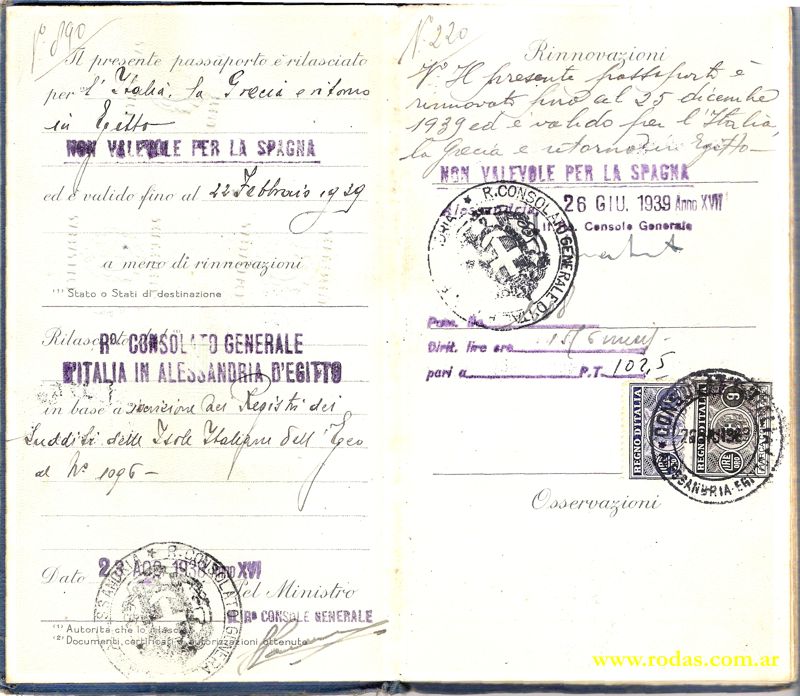 N° 890
Il presente passaporto è rilasciato
per l'Italia, la Grecia e ritorno
in Egitto
NON VALEVOLE PER LA SPAGNA
ed è valido fino al 22 Febbraio 1939
a meno di rinnovazioni
(1) Stato o Stati di destinazione
Rilasciato
Rº CONSOLATO GENERALE
D'ITALIA IN ALESSANDRIA D'EGITTO
in base a iscrizione nei Registri dei
Sudditi delle Isole Italiane dell'Egeo
al Nº 1096 -
Data 23 AGO 1938 Anno XVI
Pel Ministro
IL Rº CONSOLE GENERALE
(1) Autorità che lo rilascia
(2) Documenti, certificati o autorizzazioni ottenute
R. CONSOLATO GENERA
N. 220
Rinnovazioni
Il presente passaporto è
rinnovato fino al 25 dicembre
1939 ed è valido per l'Italia,
la Grecia e ritorno in Egitto -
NON VALEVOLE PER LA SPAGNA
26 GIU. 1939 Anno XVII
Il Console Generale
R. CONSOLATO GENERALE D'ITA
Dirit. lire oro 15 (6 mesi)
pari a P.T. 102,5
REGNO D'ITALIA
REGNO D'ITALIA
Osservazioni
www.rodas.com.ar